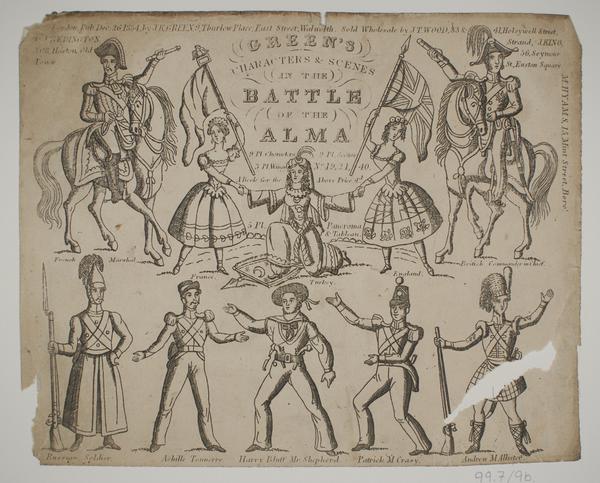 London Pub. Dec. 26 1854, by J.K. GREEN, 9, Thurlow Place, East Street, Walworth. Sold Wholesale by J.T. WOOD, 33 & 41, Holeywell Street,
Strand, J. KING,
Hoxton, Old
56, Seymour
Town
St, Euston Square
M. HYAMS, 15, Mint Street, Boro'
GREEN'S
CHARACTERS & SCENES
IN THE
BATTLE
OF THE
ALMA
9 Pl. Characters 9 Pl. Scenes
3 Pl. Wings Nos 19, 21, 40.
A Book for the Above Price 4d
5 Pl. Panorama
& Tableau.
French Marshal.
France.
Turkey.
England.
British Commander in Chief.
Russian Soldier.
Achille Tonnerre.
Harry Bluff Mr Shepherd.
Patrick McCrasy.
Andrew McAllister.
99.7/9b.